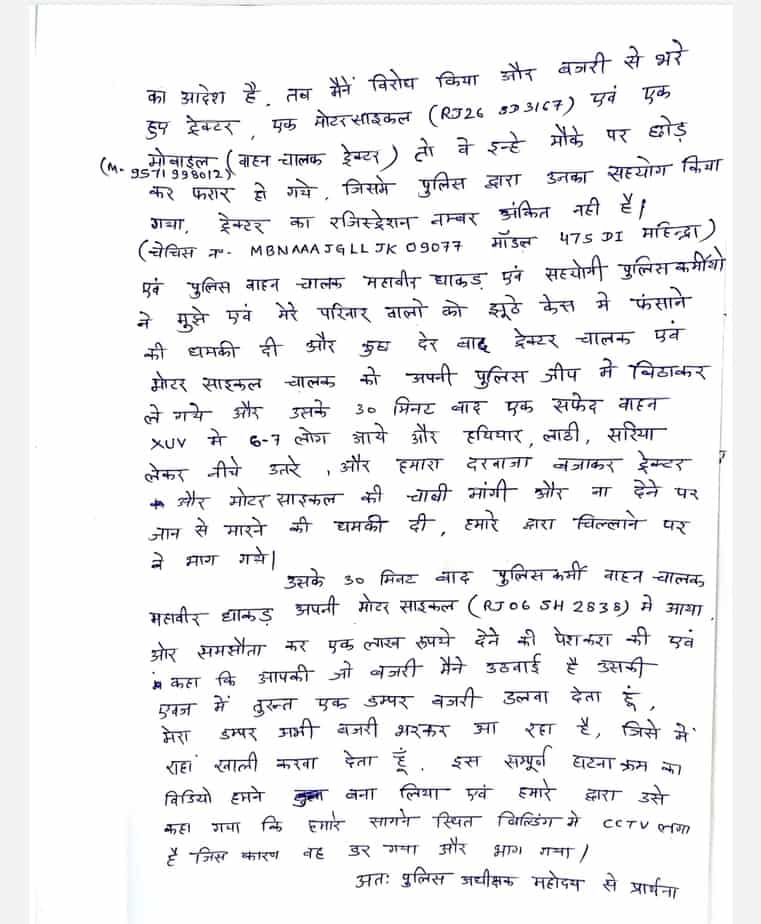 का आदेश है, तब मैनें विरोध किया और बजरी से भरे
हुए ट्रेक्टर, एक मोटरसाइकल (RJ26 SD3167) एवं एक
मोबाइल (वाहन चालक ट्रेक्टर) तो वे इन्हे मौके पर छोड़
(M- 9571998012)
कर फरार हो गये, जिसमे पुलिस द्वारा उनका सहयोग किया
गया, ट्रेक्टर का रजिस्ट्रेशन नम्बर अंकित नही है।
(चेचिस न॰- MBNAAAJGLLJK09077 मॉडल 475 DI महिन्द्रा)
एवं पुलिस वाहन चालक महावीर धाकड़ एवं सहयोगी पुलिसकर्मीयो
ने मुझे एवं मेरे परिवार वालो को झूठे केस मे फंसाने
की धमकी दी और कुछ देर बाद ट्रेक्टर चालक एवं
मोटर साइकल चालक को अपनी पुलिस जीप में बिठाकर
ले गये और उसके 30 मिनट बाद एक सफेद वाहन
XUV मे 6-7 लोग आये और हथियार, लाठी, सरिया
लेकर नीचे उतरे, और हमारा दरवाजा बजाकर ट्रेक्टर
और मोटर साइकल की चाबी मांगी और ना देने पर
जान से मारने की धमकी दी, हमारे द्वारा चिल्लाने पर
वे भाग गये।
उसके 30 मिनट बाद पुलिसकर्मी वाहन चालक
महावीर धाकड़ अपनी मोटर साइकल (RJ06 SH 2838) मे आया
ओर समसौता कर एक लाख रूपये देने की पेशकश की एवं
कहा कि आपकी जो बजरी मैने उठवाई है उसकी
एवज में तुरन्त एक डम्पर बजरी डलवा देता हूँ,
मेरा डम्पर अभी बजरी भरकर आ रहा है, जिसे में
यहां खाली करवा देता हूँ. इस सम्पूर्ण घटना क्रम का
विडियो हमने बना लिया एवं हमारे द्वारा उसे
कहा गया कि हमारे सामने स्थित बिल्डिंग मे CCTV लगा
है जिस कारण वह डर गया और भाग गया।
अतः पुलिस अधीक्षक महोदय से प्रार्थना